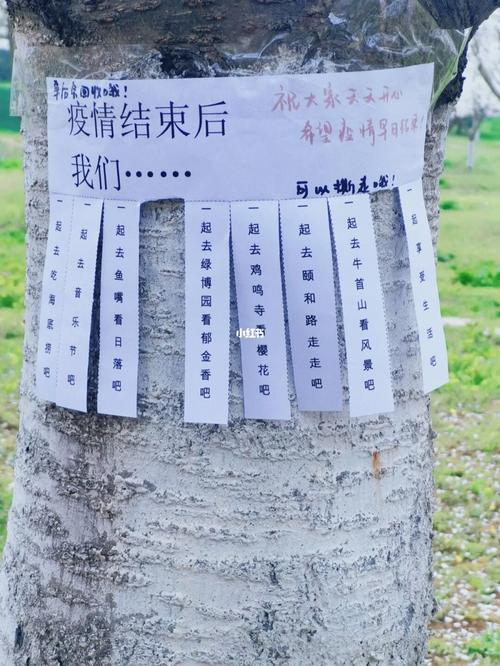 回收哦!
疫情结束后
我们……
祝大家天天开心
希望疫情早日结束!
可以撕走哦!
一起去吃海底捞吧
一起去音乐节吧
一起去鱼嘴看日落吧
一起去绿博园看郁金香吧
一起去鸡鸣寺看樱花吧
一起去颐和路走走吧
一起去牛首山看风景吧
一起享受生活吧
小红书